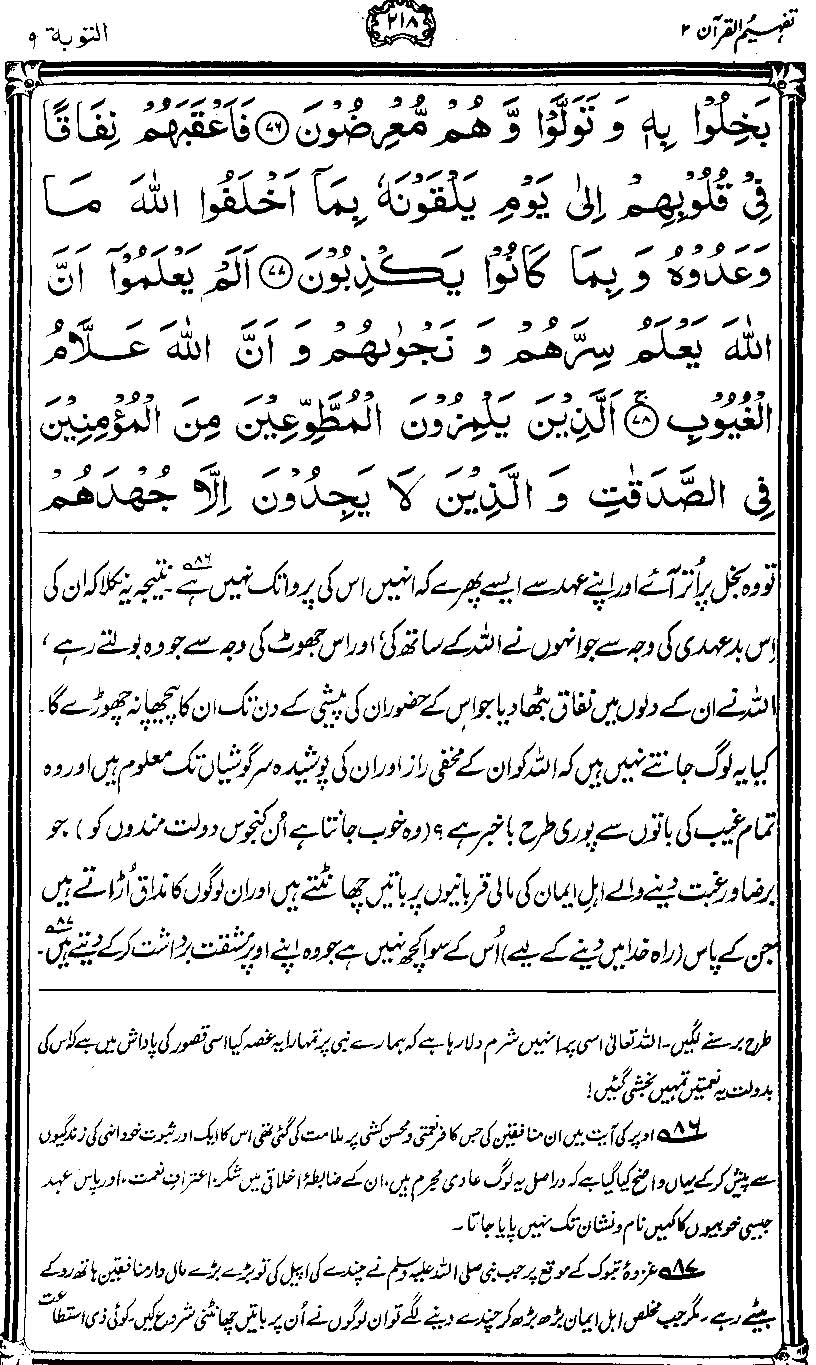 تفہیم القرآن ۲
۲۱۸
التوبۃ ۹
بَخِلُوْا بِهٖ وَ تَوَلَّوْا وَّ هُمْ مُّعْرِضُوْنَ ﴿۷۶﴾ فَاَعْقَبَهُمْ نِفَاقًا
فِیْ قُلُوْبِهِمْ اِلٰی یَوْمِ یَلْقَوْنَهٗ بِمَاۤ اَخْلَفُوا اللّٰهَ مَا
وَعَدُوْهُ وَ بِمَا كَانُوْا یَكْذِبُوْنَ ﴿۷۷﴾ اَلَمْ یَعْلَمُوْۤا اَنَّ
اللّٰهَ یَعْلَمُ سِرَّهُمْ وَ نَجْوٰىهُمْ وَ اَنَّ اللّٰهَ عَلَّامُ
الْغُیُوْبِ ﴿۷۸﴾ۚ اَلَّذِیْنَ یَلْمِزُوْنَ الْمُطَّوِّعِیْنَ مِنَ الْمُؤْمِنِیْنَ
فِی الصَّدَقٰتِ وَ الَّذِیْنَ لَا یَجِدُوْنَ اِلَّا جُهْدَهُمْ
تو وہ بخل پر اُتر آئے اور اپنے عہد سے ایسے پھرے کہ انہیں اس کی پروا تک نہیں ہے۸۶۔ نتیجہ یہ نکلا کہ ان کی
اِس بدعہدی کی وجہ سے جو انہوں نے اللہ کے ساتھ کی، اور اس جھوٹ کی وجہ سے جو وہ بولتے رہے،
اللہ نے ان کے دلوں میں نفاق بٹھا دیا جو اس کے حضور ان کی پیشی کے دن تک ان کا پیچھا نہ چھوڑے گا۔
کیا یہ لوگ جانتے نہیں ہیں کہ اللہ کو ان کے مخفی راز اور ان کی پوشیدہ سرگوشیاں تک معلوم ہیں اور وہ
تمام غیب کی باتوں سے پوری طرح باخبر ہے؟ (وہ خوب جانتا ہے اُن کنجوس دولت مندوں کو) جو
برضا و رغبت دینے والے اہلِ ایمان کی مالی قربانیوں پر باتیں چھانٹتے ہیں اور ان لوگوں کا مذاق اُڑاتے ہیں
جن کے پاس (راہ خدا میں دینے کے لیے) اُس کے سوا کچھ نہیں ہے جو وہ اپنے اوپر مشقت برداشت کر کے دیتے ہیں۸۷۔
طرح برسنے لگیں۔ اللہ تعالیٰ اسی پر انہیں شرم دلا رہا ہے کہ ہمارے نبی پر تمہارا یہ غصہ کیا اسی قصور کی پاداش میں ہے کہ اس کی
بدولت یہ نعمتیں تمہیں بخشی گئیں!
۸۶ اوپر کی آیت میں ان منافقین کی جس کافر نعمتی و محسن کشی پر ملامت کی گئی تھی اس کا ایک اور ثبوت خود انہی کی زندگیوں
سے پیش کر کے یہاں واضح کیا گیا ہے کہ دراصل یہ لوگ عادی مجرم ہیں، ان کے ضابطۂ اخلاق میں شکر، اعترافِ نعمت، اور پاس عہد
جیسی خوبیوں کا کہیں نام و نشان تک نہیں پایا جاتا۔
۸۷ غزوۂ تبوک کے موقع پر جب نبی صلی اللہ علیہ وسلم نے چندے کی اپیل کی تو بڑے بڑے مال دار منافقین ہاتھ روکے
بیٹھے رہے۔ مگر جب مخلص اہل ایمان بڑھ بڑھ کر چندے دینے لگے تو ان لوگوں نے اُن پر باتیں چھانٹنی شروع کیں۔ کوئی ذی استطاعت